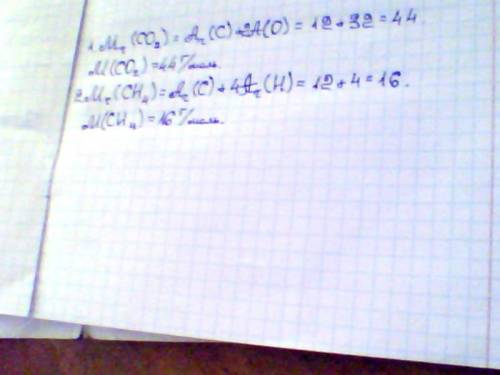 1. Mr (CO2) = Ar (C) + 2A(O) = 12 + 32 = 44.
M(CO2) = 44 г/моль.
2. Mr (CH4) = Ar (C) + 4Ar (H) = 12 + 4 = 16.
M(CH4) = 16 г/моль.